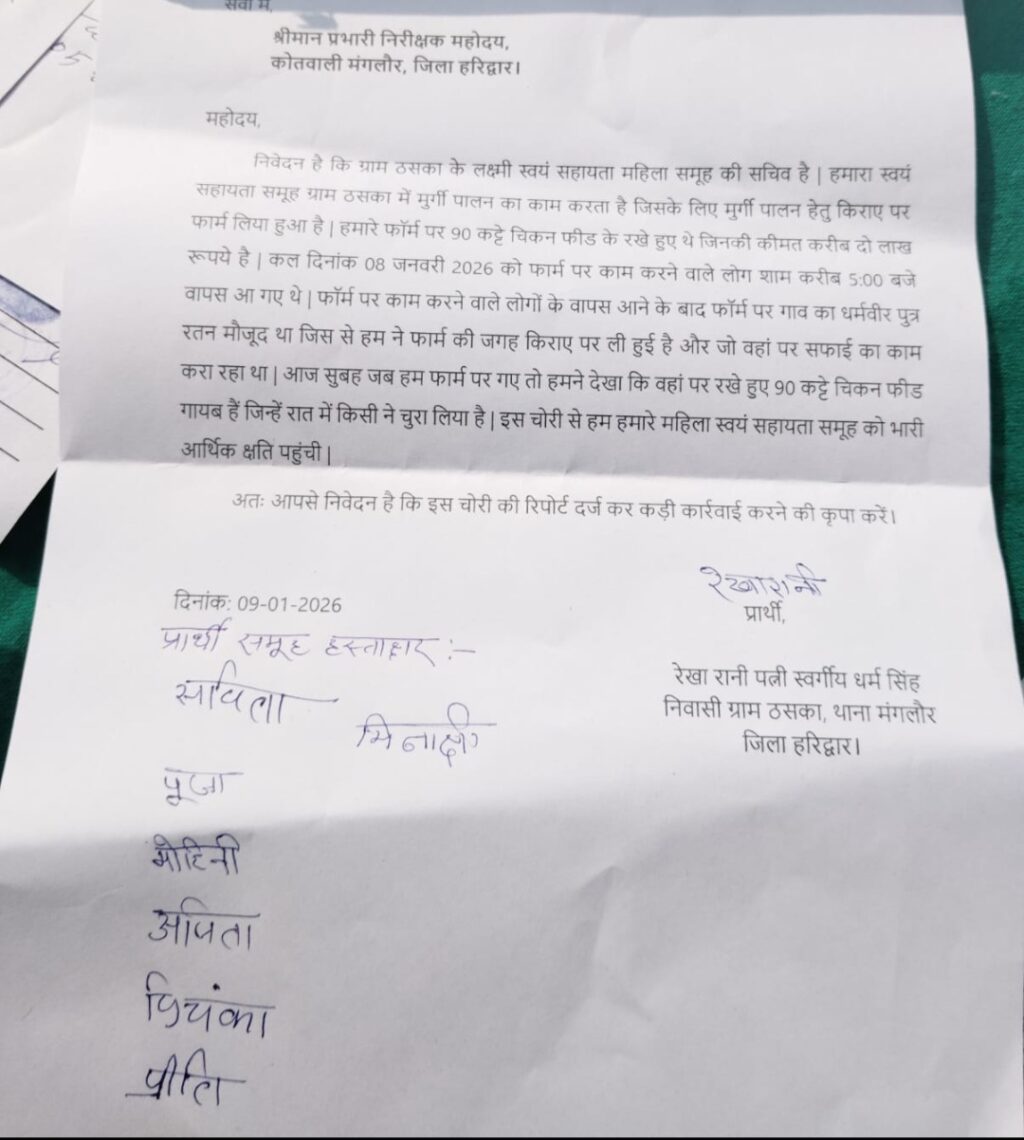 सेवा में,
श्रीमान प्रभारी निरीक्षक महोदय,
कोतवाली मंगलौर, जिला हरिद्वार।
महोदय,
निवेदन है कि ग्राम ठसका के लक्ष्मी स्वयं सहायता महिला समूह की सचिव है | हमारा स्वयं
सहायता समूह ग्राम ठसका में मुर्गी पालन का काम करता है जिसके लिए मुर्गी पालन हेतु किराए पर
फार्म लिया हुआ है | हमारे फॉर्म पर 90 कट्टे चिकन फीड के रखे हुए थे जिनकी कीमत करीब दो लाख
रूपये है | कल दिनांक 08 जनवरी 2026 को फार्म पर काम करने वाले लोग शाम करीब 5:00 बजे
वापस आ गए थे | फॉर्म पर काम करने वाले लोगों के वापस आने के बाद फॉर्म पर गाव का धर्मवीर पुत्र
रतन मौजूद था जिस से हम ने फार्म की जगह किराए पर ली हुई है और जो वहां पर सफाई का काम
करा रहा था | आज सुबह जब हम फार्म पर गए तो हमने देखा कि वहां पर रखे हुए 90 कट्टे चिकन फीड
गायब हैं जिन्हें रात में किसी ने चुरा लिया है | इस चोरी से हम हमारे महिला स्वयं सहायता समूह को भारी
आर्थिक क्षति पहुंची |
अतः आपसे निवेदन है कि इस चोरी की रिपोर्ट दर्ज कर कड़ी कार्रवाई करने की कृपा करें।
रेखा रानी
प्रार्थी,
दिनांक: 09-01-2026
प्रार्थी समूह हस्ताक्षर :-
रेखा रानी पत्नी स्वर्गीय धर्म सिंह
निवासी ग्राम ठसका, थाना मंगलौर
जिला हरिद्वार।
मिनाक्षी
पूजा
मोहिनी
प्रियंका
प्रीति